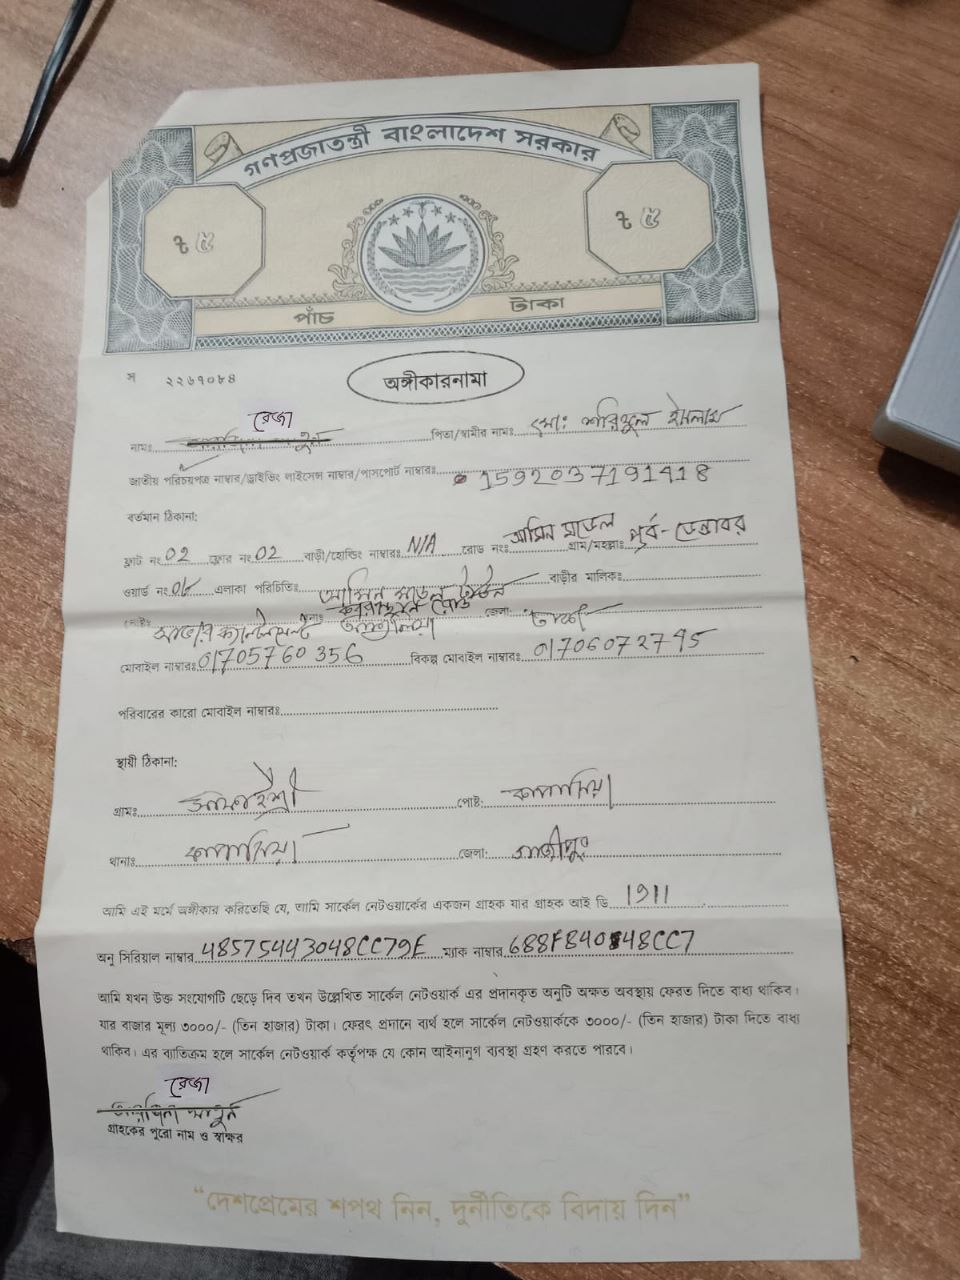 গণপ্রজাতন্ত্রী বাংলাদেশ সরকার
৳ ৫ ৳ ৫
পাঁচ টাকা
স ২২৬৭০৮৪
অঙ্গীকারনামা
রেজা
নামঃ পিতা/স্বামীর নামঃ মোঃ শরিফুল ইসলাম
জাতীয় পরিচয়পত্র নাম্বার/ড্রাইভিং লাইসেন্স নাম্বার/পাসপোর্ট নাম্বারঃ 1592037191418
বর্তমান ঠিকানা:
ফ্লাট নং 02 ফ্লোর নং 02 বাড়ী/হোল্ডিং নাম্বারঃ N/A রোড নংঃ আমিন মডেল গ্রাম/মহল্লাঃ পূর্ব-ডেন্ডাবর
ওয়ার্ড নং এলাকা পরিচিতিঃ আমিন মডেল টাউন বাড়ীর মালিকঃ
কবরস্থান রোড
পোষ্টঃ সাভার ক্যান্টনমেন্ট থানাঃ আশুলিয়া জেলা: ঢাকা
মোবাইল নাম্বারঃ 01705760356 বিকল্প মোবাইল নাম্বারঃ 01706072795
পরিবারের কারো মোবাইল নাম্বারঃ
স্থায়ী ঠিকানা:
গ্রামঃ পোষ্ট: কাপাসিয়া
থানাঃ কাপাসিয়া জেলা: গাজীপুর
আমি এই মর্মে অঙ্গীকার করিতেছি যে, আমি সার্কেল নেটওয়ার্কের একজন গ্রাহক যার গ্রাহক আই ডি 1911
অনু সিরিয়াল নাম্বার 48575443048CC79E ম্যাক নাম্বার 688F84048CC7
আমি যখন উক্ত সংযোগটি ছেড়ে দিব তখন উল্লেখিত সার্কেল নেটওয়ার্ক এর প্রদানকৃত অনুটি অক্ষত অবস্থায় ফেরত দিতে বাধ্য থাকিব।
যার বাজার মূল্য ৩০০০/- (তিন হাজার) টাকা। ফেরৎ প্রদানে ব্যর্থ হলে সার্কেল নেটওয়ার্ককে ৩০০০/- (তিন হাজার) টাকা দিতে বাধ্য
থাকিব। এর ব্যতিক্রম হলে সার্কেল নেটওয়ার্ক কর্তৃপক্ষ যে কোন আইনানুগ ব্যবস্থা গ্রহণ করতে পারবে।
রেজা
গ্রাহকের পুরো নাম ও স্বাক্ষর
“দেশপ্রেমের শপথ নিন, দুর্নীতিকে বিদায় দিন”